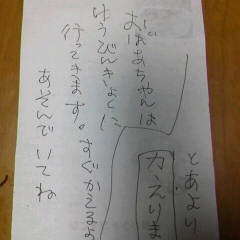 とあより
カえりま
おばあちゃんは
ゆうびんきょくに
行ってきます。すぐかえるよ
あそんでいてね